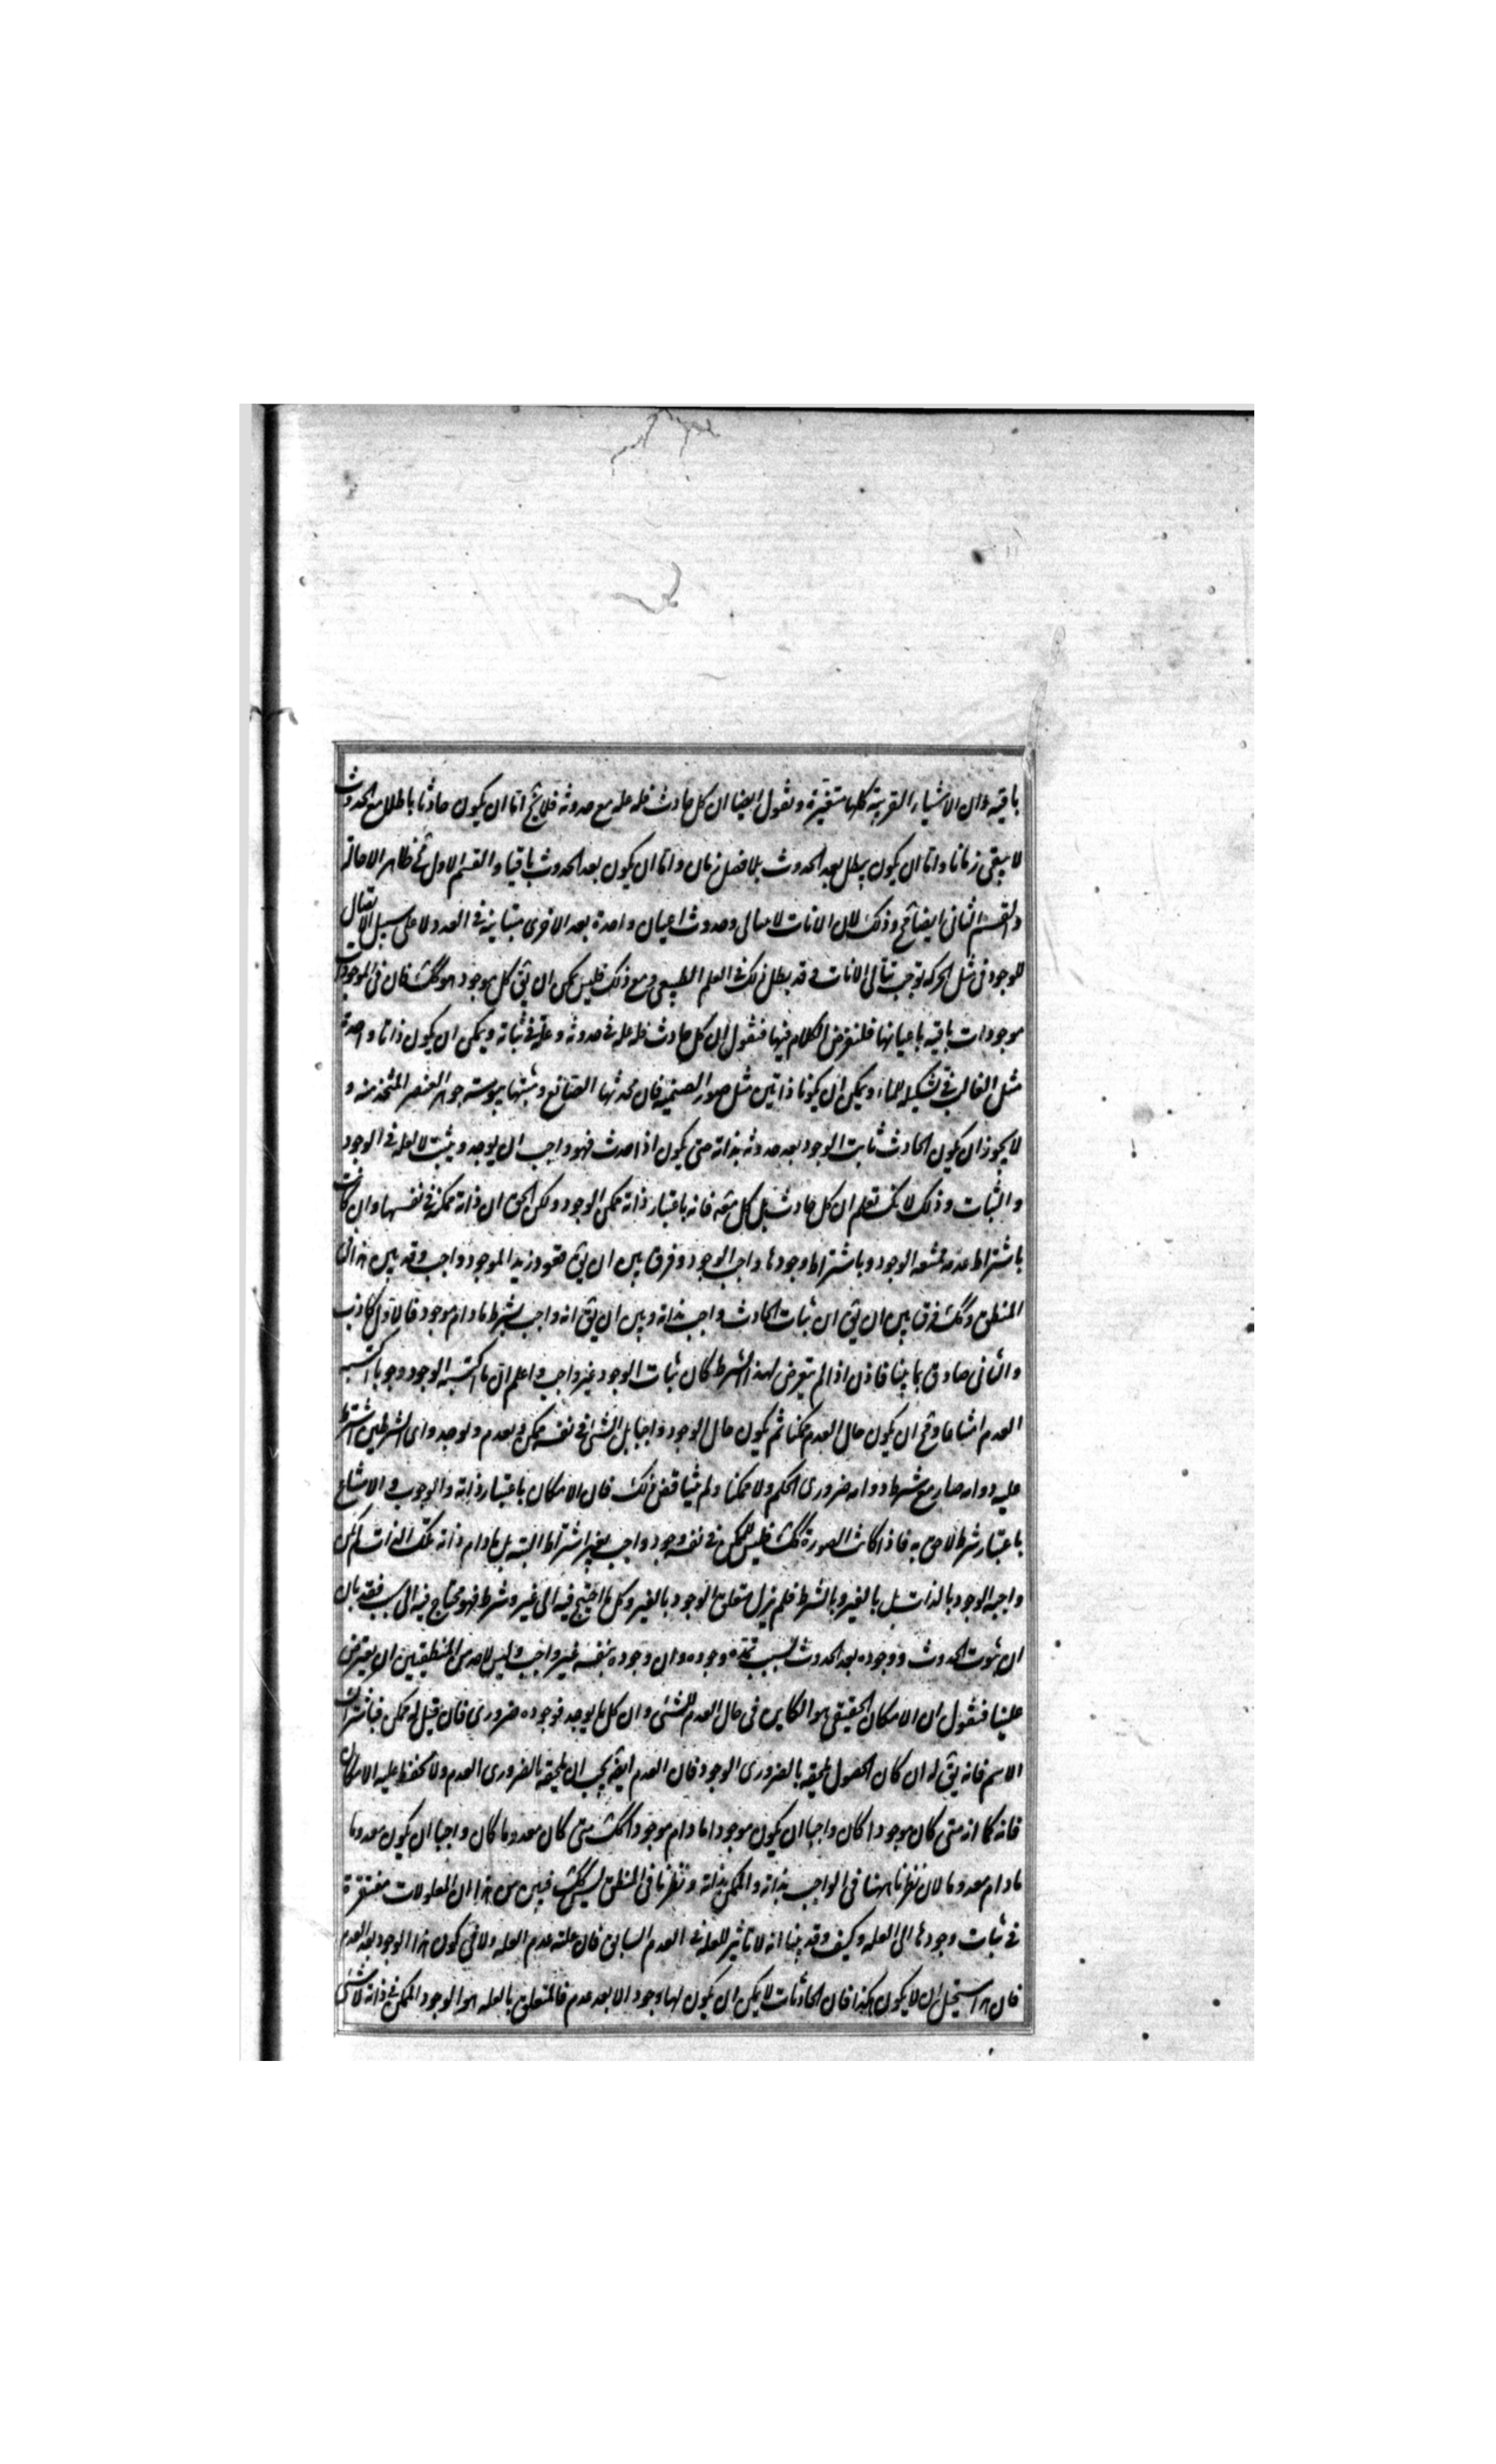 باقية وان الاشياء القريبة كلها متغيرة ونقول ايضا ان كل حادث فله علة مع حدوثه فلا يخ اما ان يكون حادثا باطلا مع الحدوث
لا يبقى زمانا واما ان يكون يبطل بعد الحدوث بلا فصل زمان واما ان يكون بعد الحدوث باقيا والقسم الاول مح ظاهر الاحالة
والقسم الثانى ايضا مح وذلك لان الانات لا تتالى وحدوث اعيان واحدة بعد الاخرى متباينة فى العدد لا على سبيل الاتصال
الموجود فى مثل الحركة توجب تتالى الانات وقد بطل ذلك فى العلم الطبيعى ومع ذلك فليس يمكن ان يق كل موجود هو كك فان فى الموجودات
موجودات باقية باعيانها فلنفرض الكلام فيها فنقول ان كل حادث فله علة فى حدوثه وعلة فى ثباته ويمكن ان يكون ذاتا واحدة
مثل القالب فى تشكيله للماء ويمكن ان يكونا ذاتين مثل صور الصنمية فان محدثها الصانع ومثبتها يبوسة جوهر العنصر المتخذ منه و
لا يجوز ان يكون الحادث ثابت الوجود بعد حدوثه بذاته حتى يكون اذا حدث فهو واجب ان يوجد ويثبت لا لعلة فى الوجود
والثبات وذلك لانك تعلم ان كل حادث بل كل معه فانه باعتبار ذاته ممكن الوجود ولكن الحق ان ذاته ممكنة فى نفسها وان كانت
باشتراط عدمه ممتنعه الوجود وباشتراط وجودها واجب الوجود وفرق بين ان يق وجود زيد الموجود واجب وقد بين هذا فى
المنطق وكك فرق بين ان يق ان ثبات الحادث واجب بذاته وبين ان يق انه واجب بشرط ما دام موجود فالاول كاذب
والثانى صادق بما بينا فاذن اذا لم يتعرض لهذا الشرط كان ثبات الوجود غير واجب واعلم ان ما اكسبه الوجود وجوبا اكسبه
العدم امتناعا ومح ان يكون حال العدم ممكنا ثم يكون حال الوجود واجبا بل الشئ فى نفسه ممكن ويعدم ويوجد واى الشرطين اشترط
عليه دوامه صار مع شرط دوامه ضرورى الحكم ولا ممكنا ولم يتناقض ذلك فان الامكان باعتبار ذاته والوجوب والامتناع
باعتبار شرط لاحق به فاذا كانت الصورة كك فليس للممكن فى نفسه وجود واجب بغير اشتراط البتة بل ما دام ذاته تلك الذات لم يكن
واجبة الوجود بالذات بل بالغير وبالشرط فلم يزل متعلق الوجود بالغير وكل ما احتيج فيه الى غير وشرط فهو محتاج فيه الى سبب فقد بان
ان ثبوت الحدوث ووجوده بعد الحدوث بسبب تمده وجوده وان وجوده بنفسه غير واجب وليس لاحد من المنطقيين ان يعترض
علينا فنقول ان الامكان الحقيقى هو الكاين فى حال العدم للشئ وان كل ما يوجد فوجوده ضرورى فان قيل له ممكن فباشتراك
الاسم فانه يق له ان كان الحصول يلحقه بالضرورى الوجود فان العدم ايضا يجب ان يلحقه بالضرورى العدم ولا تحفظ عليه الامكان
فانه كما انه متى كان موجودا كان واجبا ان يكون موجودا ما دام موجودا كك متى كان معدوما كان واجبا ان يكون معدوما
ما دام معدوما لان نظرنا ههنا فى الواجب بذاته والممكن بذاته ونظرنا فى المنطق ليس كك فبين من هذا ان المعلولات مفتقرة
فى ثبات وجودها الى العلة وكيف وقد بينا انه لا تاثير للعلة فى العدم السابق فان علته عدم العلة ولا فى كون هذا الوجود بعد العدم
فان هذا يستحيل ان لا يكون هكذا فان الحادثات لا يمكن ان يكون لها وجود الا بعد عدم فالمتعلق بالعلة هو الوجود الممكن فى ذاته لا شئ